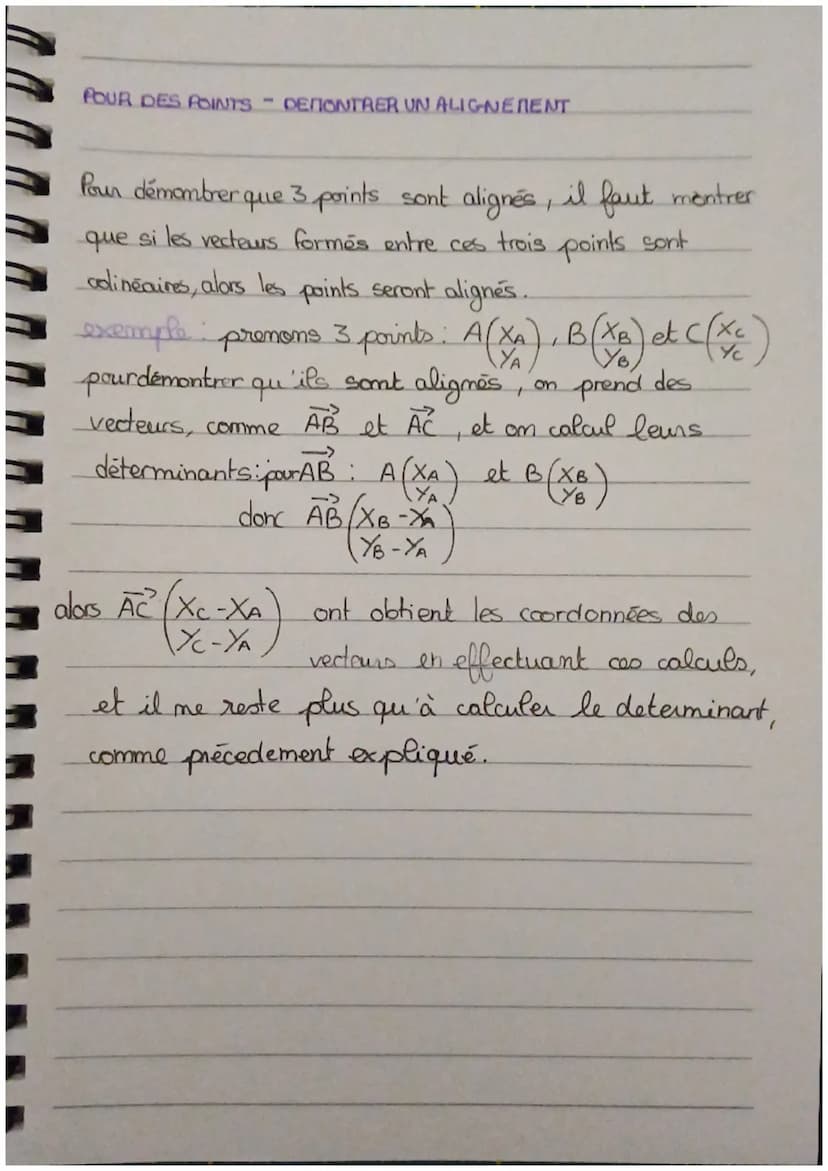 POUR DES POINTS - DEMONTRER UN ALIGNEMENT
Pour démontrer que 3 points sont alignés, il faut montrer
que si les vecteurs formés entre ces trois points sont
colinéaires, alors les points seront alignés.
exemple : prenons 3 points : A(XA YA), B(XB YB) et C(XC YC)
pour démontrer qu'ils sont alignés, on prend des
vecteurs, comme AB→ et AC→, et on calcul leurs
déterminants: pour AB→ : A(XA YA) et B(XB YB)
donc AB→(XB-XA
YB-YA)
alors AC→(XC-XA YC-YA) ont obtient les coordonnées des
vecteurs en effectuant ces calculs,
et il ne reste plus qu'à calculer le determinant,
comme précedement expliqué.